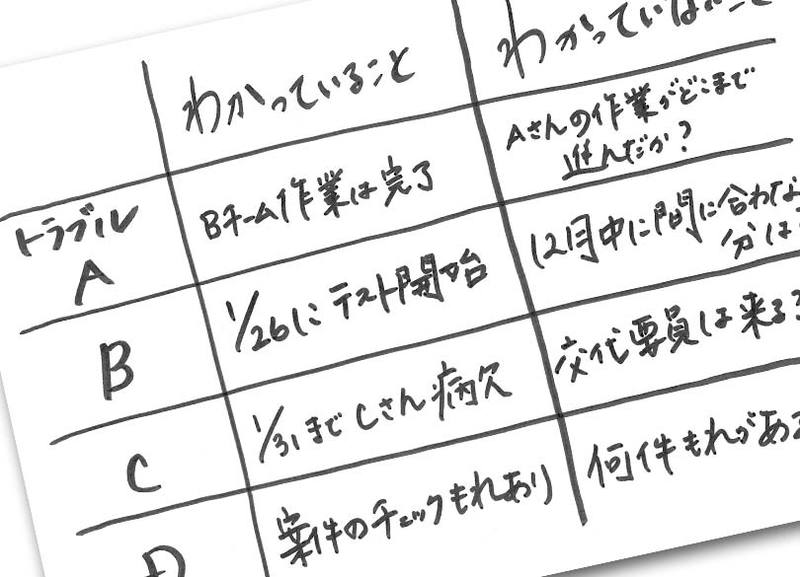 わかっていること
わかっていないこと
トラブル
A
Bチーム作業は完了
Aさんの作業がどこまで
進んだか?
B
1/26にテスト開始
12月中に間に合わな
分は
C
1/31までCさん病欠
交代要員は来る?
D
案件のチェックもれあり
何件もれがある